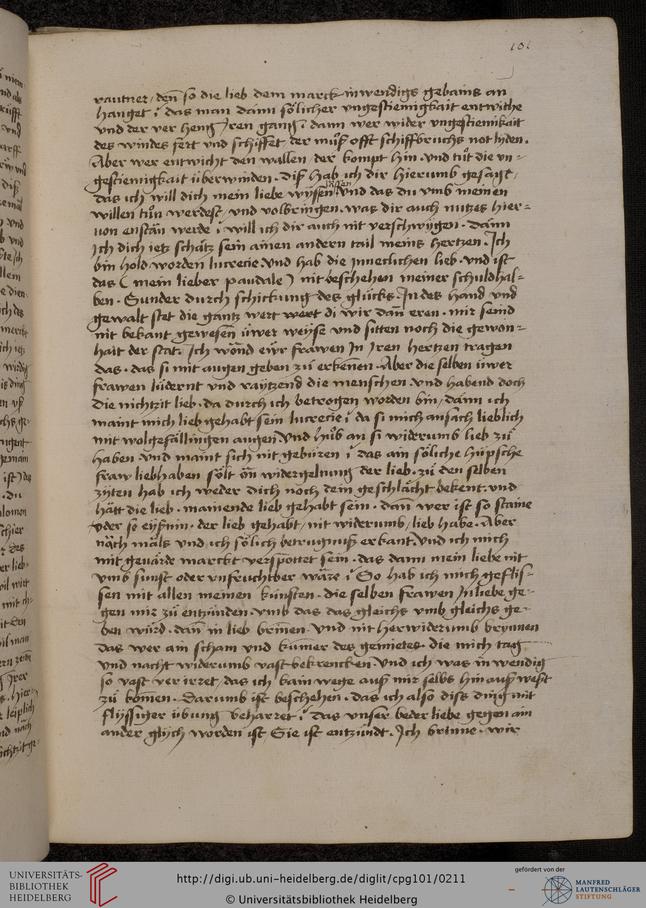 101
rautner / den̄ so die lieb dem marck inwendigs gebains an
hanget i das man dann sölicher vngestiemigkait entwiche
vnd der ver heng Jren gang i dann wer wider vngestiemikait
des windes fert vnd schiffet der muͦß offt schiffbruchs not lyden.
Aber wer entwicht den wallen der kompt hin. vnd tuͦt die vn=
gestiemigkait überwinden. diß hab ich dir hierumb gesagt /
das ich will dich mein liebe wyssen vnd das du vmb meinen
willen tuͦn werdest / vnd volbringen. was dir auch nutzes hier=
uon enstan werde i will ich dir auch nit verschwygen. dann
Ich dich ietz schätz sein ainen andern tail meins hertzen. Ich
bin hold worden lucrecie vnd hab die jnnerlichen lieb. vnd ist
das ( mein lieber pandale ) nit beschehen meiner schuldhal=
ben. Sunder durch schickung des glücks. In des hand vnd
gewalt stet die gantz wert wert di wir dan̄ eren. mir seind
nit bekant gewesen üwer weyse vnd sitten noch die gewon=
hait der stat. Ich wond ewr frawen Jn Jren hertzen tragen
das. das si mit augen geben zuͦ erkenen. Aber die selben üwer
frawen lüdernt vnd raytzend die menschen. vnd habend doch
die nichtzit lieb. da durch ich betrogen worden bin / dann ich
maint mich lieb gehabt sein lucrecie i da si mich ansach lieblich
mit wolgefällingen augen vnd huͦb an si widerumb lieb zuͦ
haben vnd maint sich nit gebüren i das ain söliche hüpsche
fraw liebhaben sölt on̄ widergeltung der lieb. zuͦ den selben
zyten hab ich weder dich noch dein geschlächt bekent. vnd
hätt die lieb. mainende lieb gehabt sein. dan wer ist so staine
oder so eyßnin. der lieb gehabt / nit widerumb / lieb habe. Aber
nach mals vnd ich sölich betrugnuß erkant. vnd ich mich
mit geuärde marckt verspottet sein. das dann mein liebe nit
vmb sunst oder vnfruchtber wäre i So hab ich mich geflis=
sen mit allen meinen künsten. die selben frawen Jn liebe ge=
gen mir zuͦ entzünden. vmb das das gleichs vmb gleichs ge=
ben würd. dan̄ in lieb brinen. vnd nit herwiderumb brynnen
das wer ain scham vnd kumer des gemietes. die mich tag
vnd nacht widerumb vast bekrencken. vnd ich was inwendig
so vast verirret / das ich kain wege auß mir selbs hin auß west
zuͦ komen. Darumb ist beschehen. das ich also diss ding mit
flyssiger übung beharret i das vnser beder liebe gegen ain
ander glych worden ist Sie ist entzündt. Ich brinne. wir
UNIVERSITÄTS-
BIBLIOTHEK
HEIDELBERG
http://digi.ub.uni-heidelberg.de/diglit/cpg101/0211
© Universitätsbibliothek Heidelberg
gefördert von der
MANFRED
LAUTENSCHLÄGER
STIFTUNG